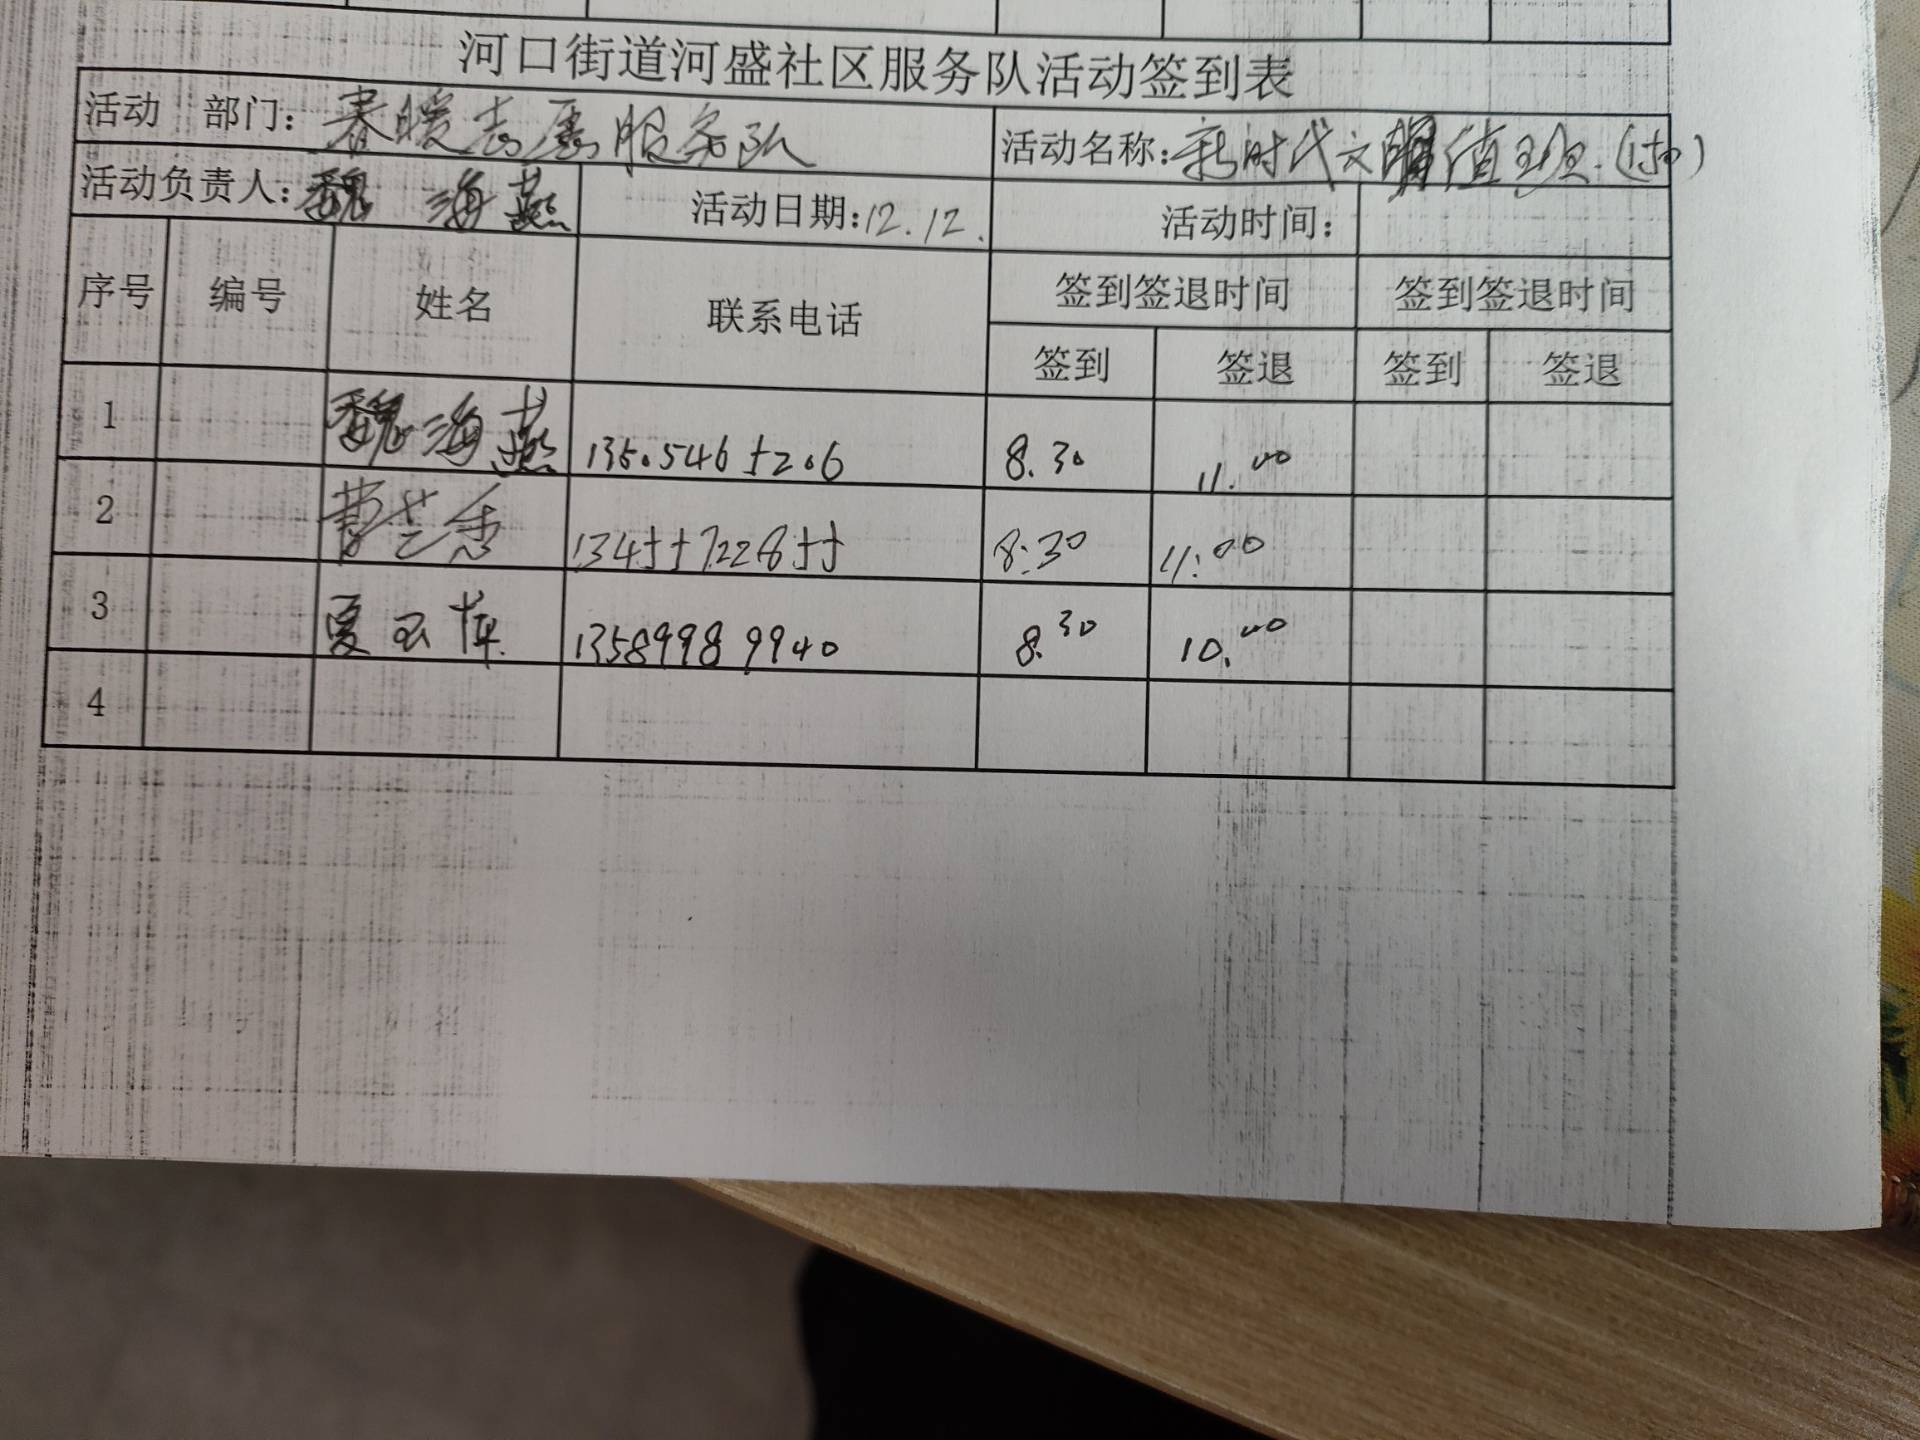 河口街道河盛社区服务队活动签到表
活动 部门：春暖志愿服务队 活动名称：新时代文明值班
活动负责人：魏海燕 活动日期：12.12. 活动时间：
序号 编号 姓名 联系电话 签到签退时间 签到签退时间
签到 签退 签到 签退
1 魏海燕 8.30 11.00
2 13455722855 8:30 11:00
3 夏玉萍 13589989940 8.30 10.00
4